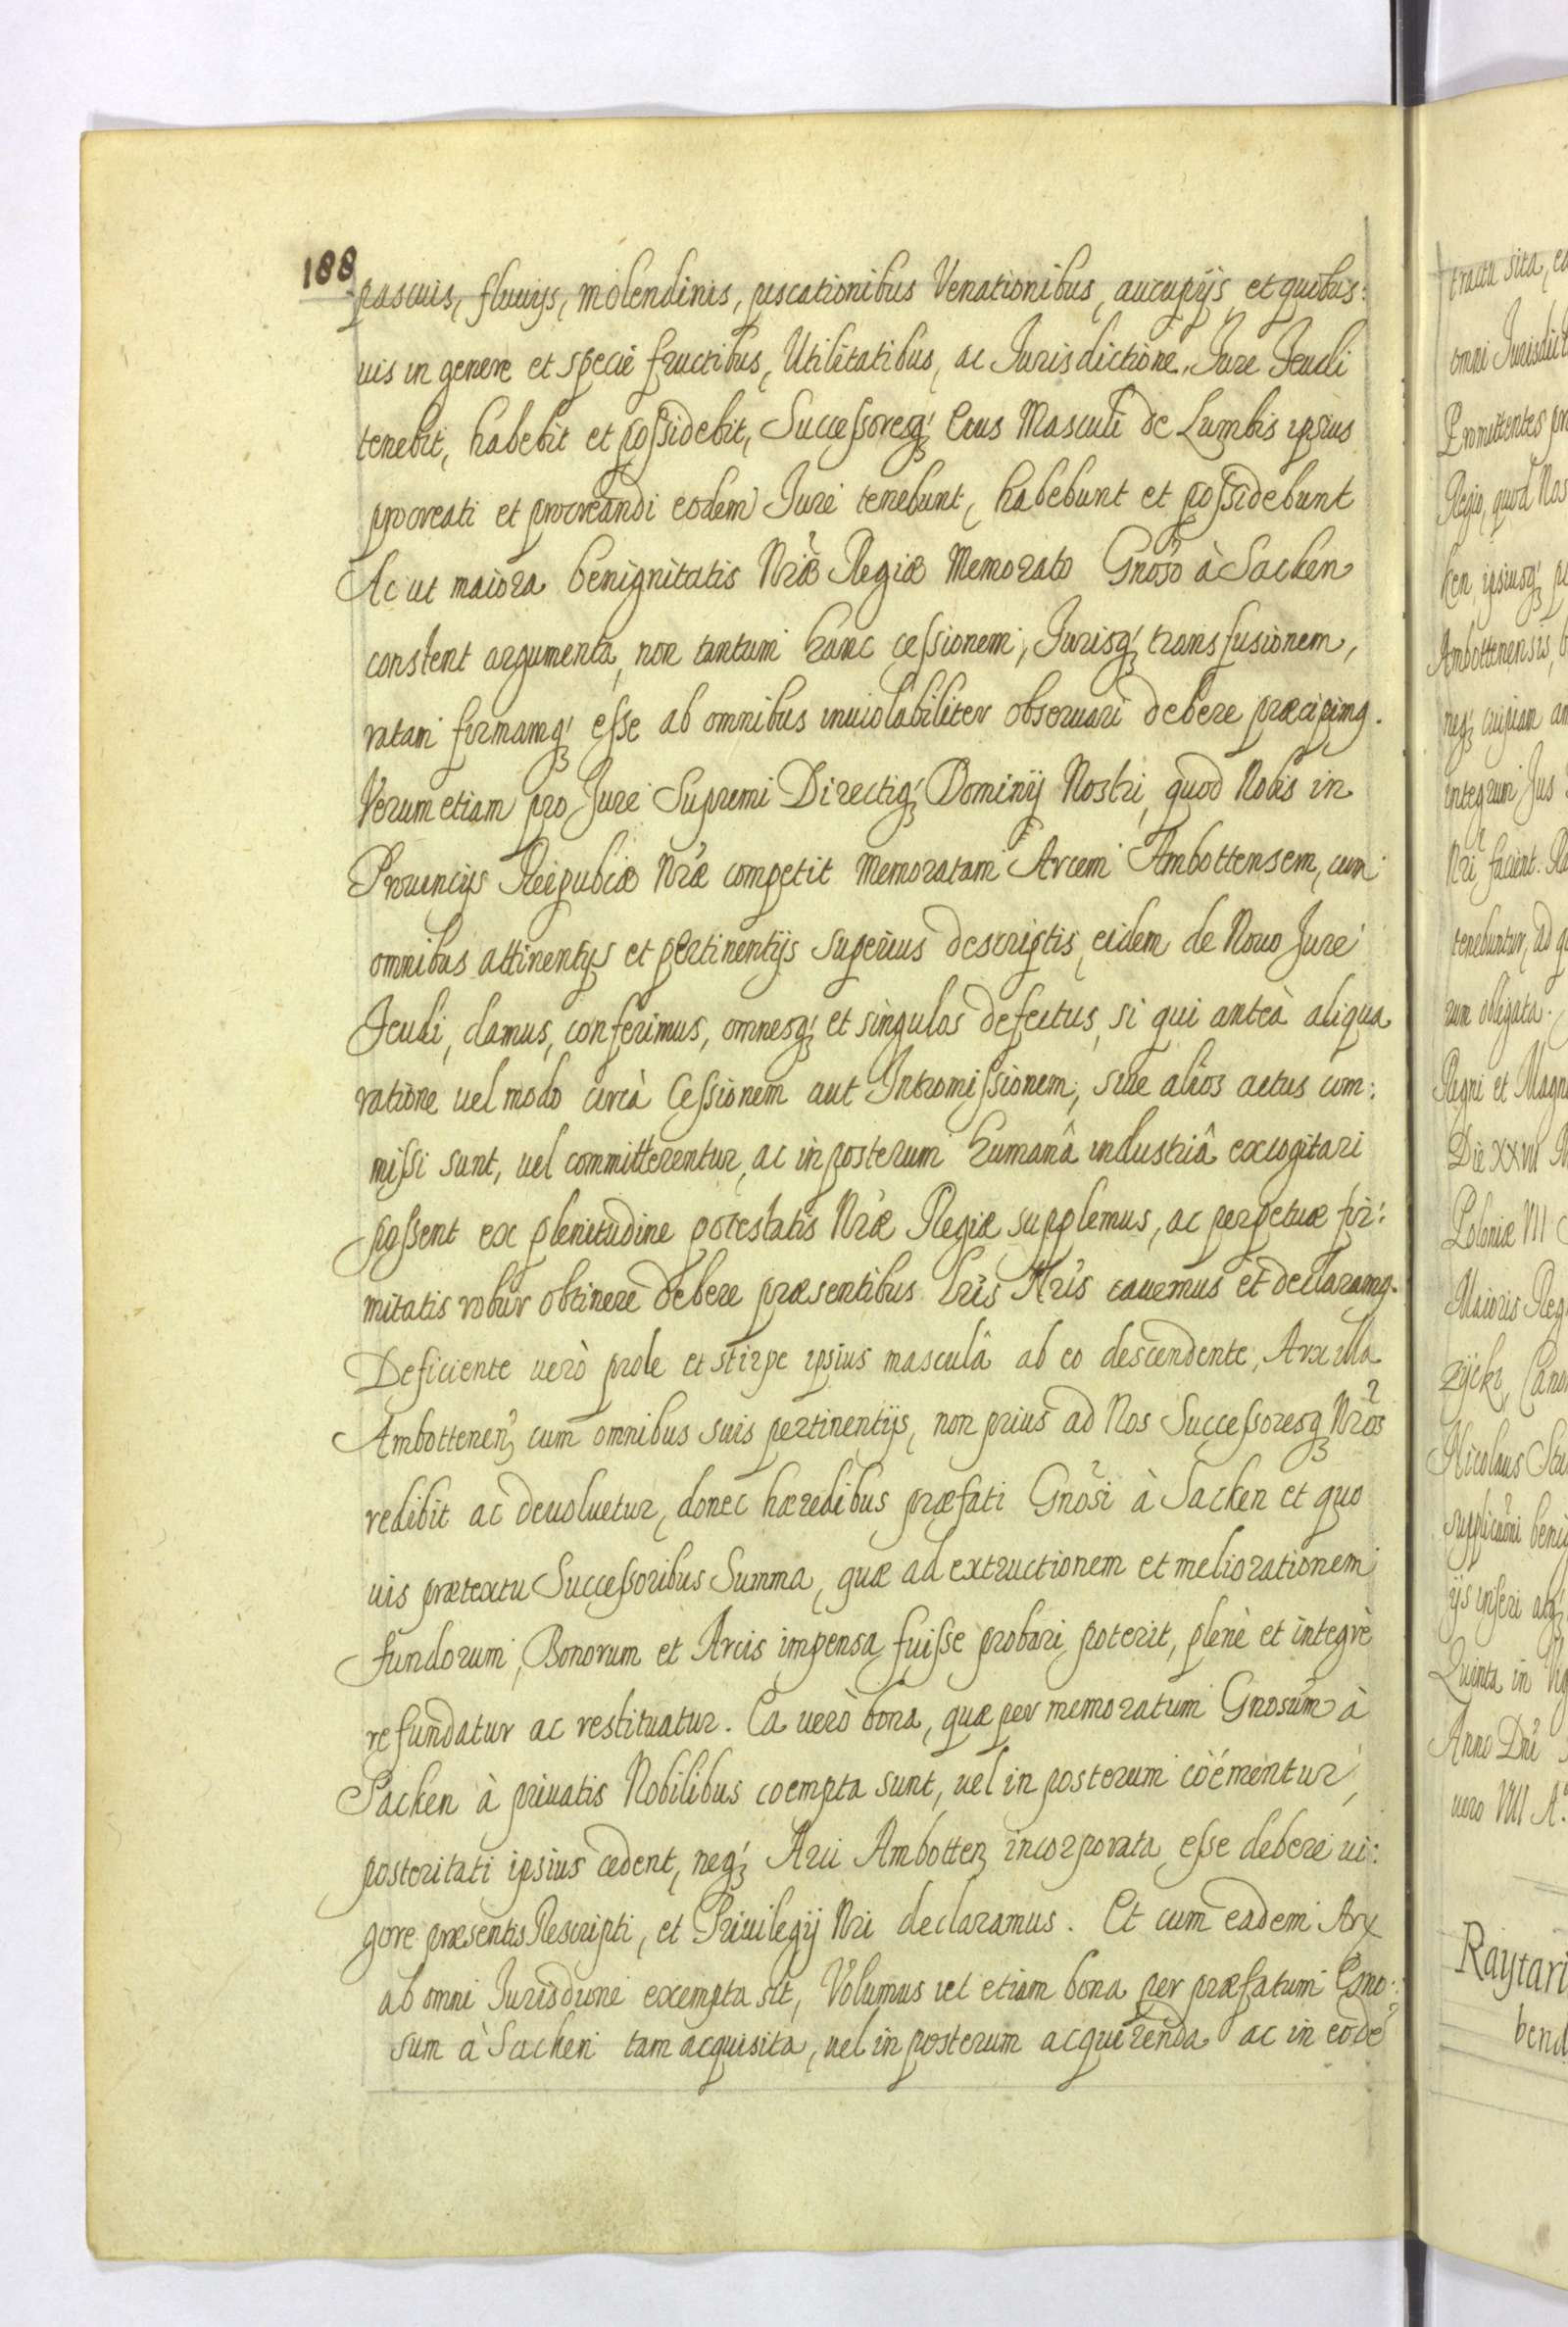 188
pascuis, fluuijs, molendinis, piscationibus Venationibus, aucupijs et quibus:
uis in genere et specie fructibus, Utilitatibus, ac Jurisdictione, Jure Feudi
tenebit, habebit et possidebit, Successoresq́ꝫ Eius Masculi de Lumbis ipsius
procreati et procreandi eodem Jure tenebunt, habebunt et possidebunt
Ac ut maiora benignitatis Nr̃æ Regiæ Memorato Gnõso à Sacken
constent argumenta, non tantum hanc cessionem, Jurisq́ꝫ transfusionem,
ratam firmamq́ꝫ esse ab omnibus inuiolabiliter obseruari debere præcipimꝰ.
Verum etiam pro Jure Supremi Directiq́ꝫ Dominij Nostri, quod Nobis in
Prouincijs Reipublicæ Nr̃æ competit Memoratam Arcem Ambottensem, cum
omnibus attinentijs et pertinentijs superius descriptis, eidem de Nouo Jure
Feudi, damus, conferimus, omnesq́ꝫ et singulos defectus, si qui anteà aliqua
ratione uel modo circà Cessionem aut Intromissionem, siue alios actus com:
missi sunt, uel committerentur, ac in posterum humanâ industriâ excogitari
possent ex plenitudine potestatis Nr̃æ Regiæ supplemus, ac perpetuæ fir:
mitatis robur obtinere debere præsentibus Lr̃is Nr̃is cauemus et declaramꝰ.
Deficiente uerò prole et stirpe ipsius masculâ ab eo descendente, Arx illa
Ambottenen̄ꝫ cum omnibus suis pertinentijs, non prius ad Nos Successoresqꝫ Nr̃os
redibit ac deuoluetur, donec hæredibus præfati Gnõsi à Sacken et quo
uis prætextu Successoribus Summa, quæ ad extructionem et meliorationem
fundorum, Bonorum et Arcis impensa fuisse probari poterit, plenè et integrè
refundatur ac restituatur. Ea uerò bona, quæ per memoratum Gnosum à
Sacken à priuatis Nobilibus coempta sunt, uel in posterum coëmentur,
posteritati ipsius cedent, neq́ꝫ Arci Ambottenꝫ incorporata esse debere ui:
gore præsentis Rescripti, et Priuilegij Nri declaramus. Et cum eadem Arx
ab omni Jurisdione exempta sit, Volumus uel etiam bona per præfatum Gno:
sum à Sacken tam acquisita, uel in posterum acquirenda ac in eodẽ
tracta sita, ea
omni Jurisdict
Promittentes pro
Regio, quod Nos
ken, ipsiusq́ꝫ
Ambottenensis,
neqꝫ cuipiam
integrum Jus
Nri facient.
tenebuntur, ad
rum obligata.
Regni et Magn
Die XXVII
Poloniæ VII
Maioris Reg
Nicolaus
supplicaõni beni
ijs inseri
Quinta in
Anno Dni
uero VIII A.
Raytari
bend